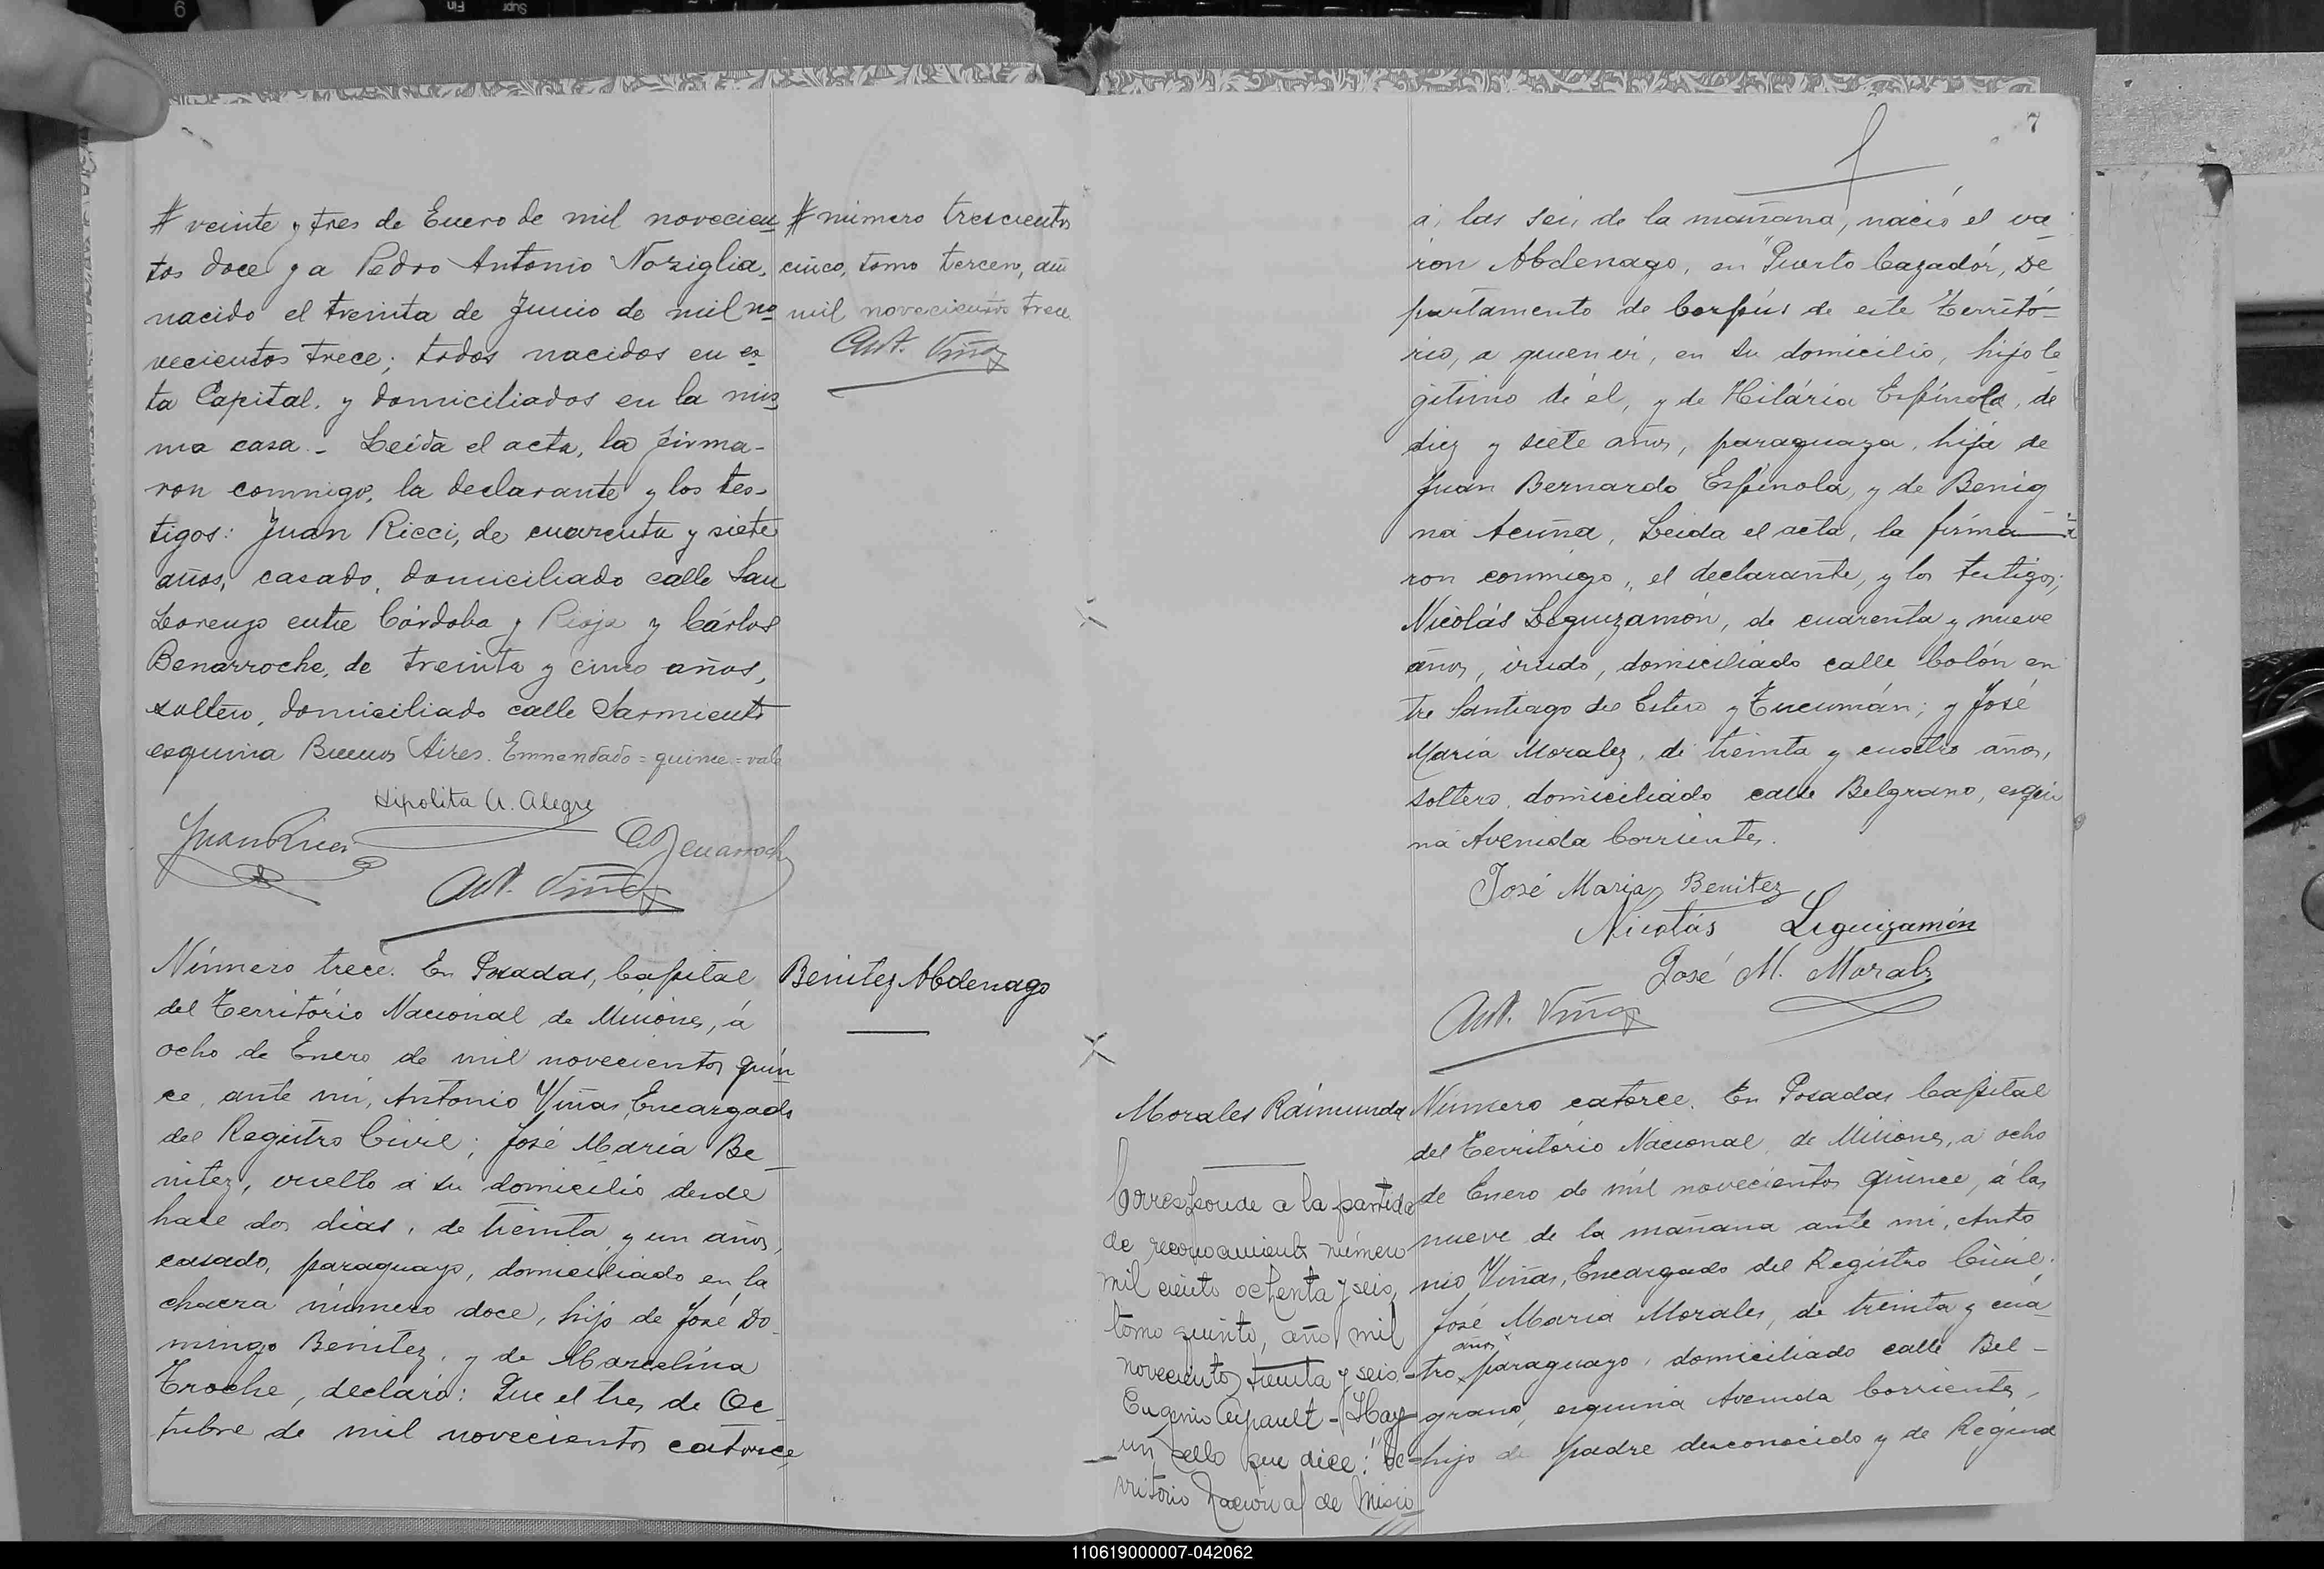 # veinte y tres de Enero de mil novecien
tos doce y a Pedro Antonio Noziglia,
nacido el treinta de Junio de mil no
vecientos trece; todos nacidos en es
ta Capital, y domiciliados en la mis
ma casa. - Leida el acta, la firma-
ron conmigo, la declarante y los tes-
tigos: Juan Ricci, de cuarenta y siete
años, casado, domiciliado calle San
Lorenzo entre Córdoba y Rioja y Cárlos
Benarroche, de treinta y cinco años,
soltero, domiciliado calle Sarmiento
esquina Buenos Aires. Enmendado = quince = vale
Hipolita A. Alegre
Juan Ricci
Ant. Viñas
# número trescientos
cinco, tomo tercero, año
mil novecientos trece
Ant. Viñas
Número trece. En Posadas, Capital
del Território Nacional de Misiones, á
ocho de Enero de mil novecientos quin
ce, ante mi, Antonio Viñas, Encargado
del Registro Civil; José María Be-
nitez, vuelto á su domicilio desde
hace dos dias, de treinta y un años,
casado, paraguayo, domiciliado en la
chacra número doce, hijo de José Do-
mingo Benitez, y de Marcelina
Troche, declaró: Que el tres de Oc-
tubre de mil novecientos catorce
Benitez Abdenago
7
á las seis de la mañana, nació el va
ron Abdenago, en Puerto Cazador, De
partamento de Corpús de este Territó-
rio, a quien vi, en su domicilio, hijo le
gítimo de él, y de Hilária Espínola, de
diez y siete años, paraguaya, hija de
Juan Bernardo Espínola, y de Benig
na Acuña, Leida el acta, la firma-
ron conmigo, el declarante, y los testigos;
Nicolás Leguizamón, de cuarenta y nueve
años, viudo, domiciliado calle Colón en
tre Santiago del Estero y Tucumán; y José
María Morales, de treinta y cuatro años,
soltero, domiciliado calle Belgrano, esqui
na Avenida Corrientes.
José Maria Benitez
Nicolás Leguizamón
José M. Morales
Ant. Viñas
Morales Raimunda
Corresponde a la partida
de reconocimiento número
mil ciento ochenta y seis,
tomo quinto, año mil
novecientos treinta y seis.-
Eugenio - Hay
un sello que dice: "Te-
rritorio Nacional de Misio
Número catorce. En Posadas Capital
del Território Nacional de Misiones, á ocho
de Enero de mil novecientos quince, á las
nueve de la mañana ante mi, Anto
nio Viñas, Encargado del Registro Civil;
José María Morales, de treinta y cua-
años
tro paraguayo, domiciliado calle Bel-
grano, esquina Avenida Corrientes,
hijo de padre desconocido y de Regina
110619000007-042062